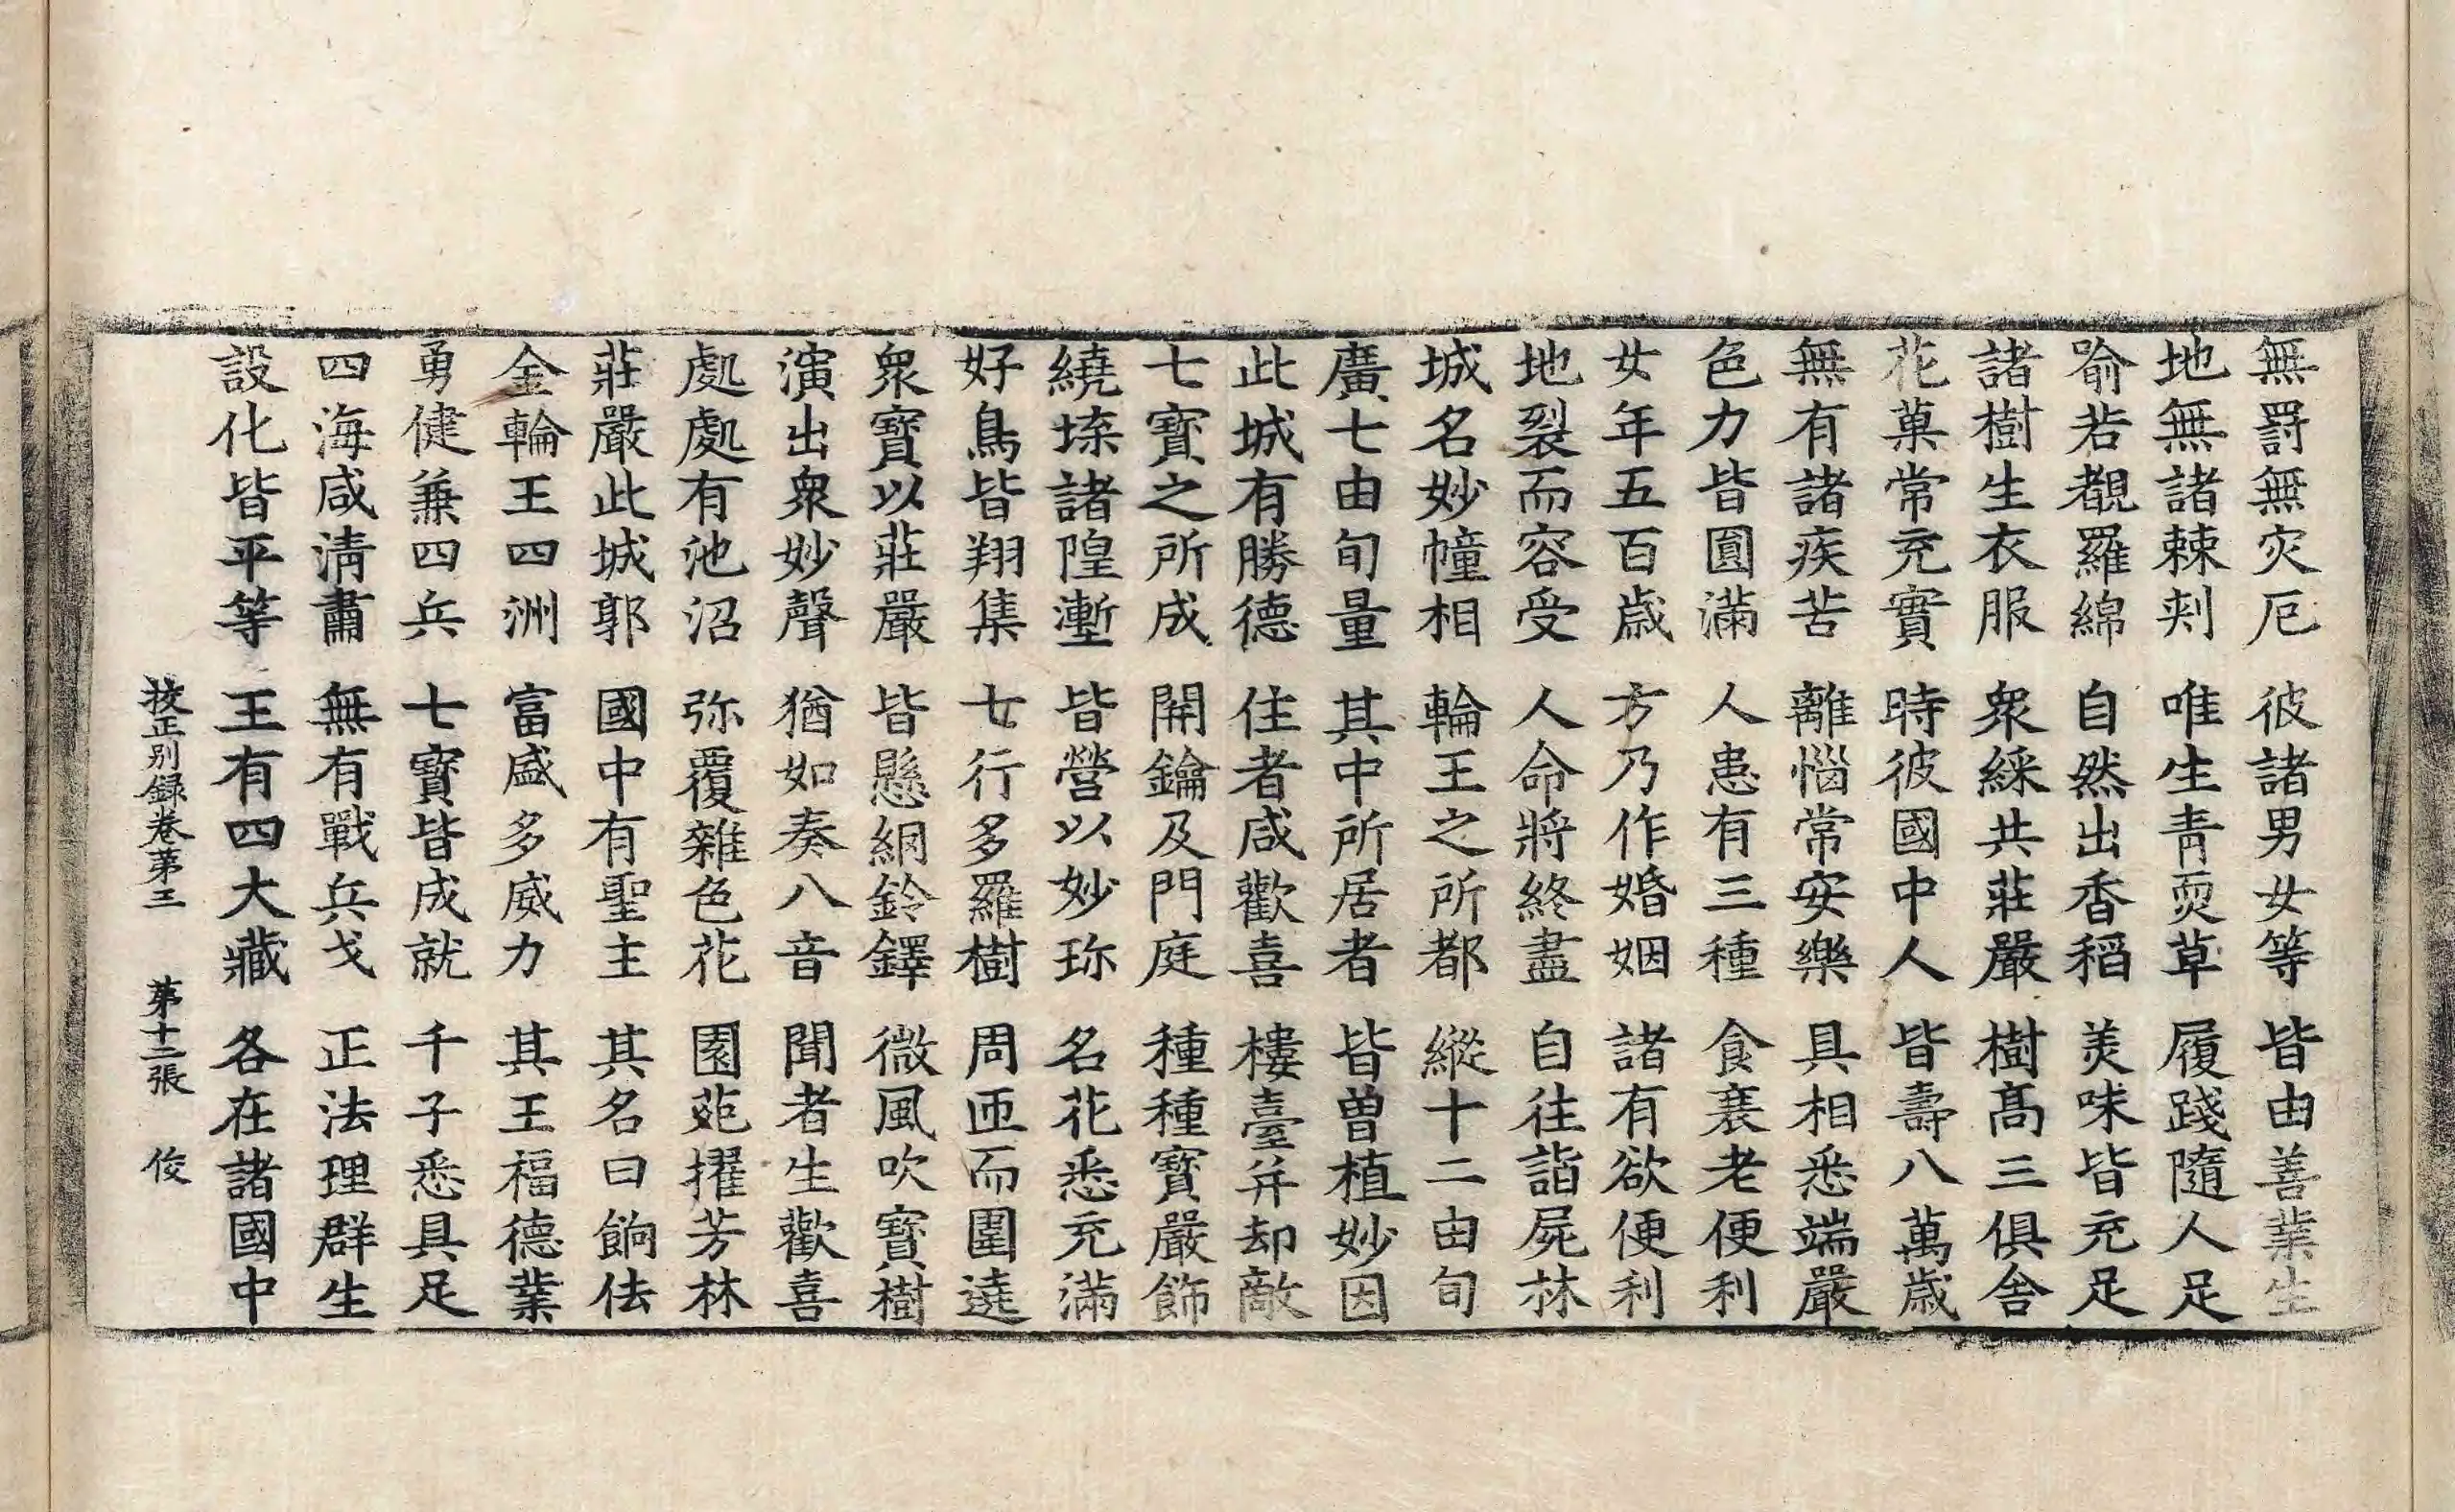 無罸無灾厄　彼諸男女等　皆由善業生
地無諸棘刾　唯生青耎草　履踐隨人足
喻若覩羅綿　自然出香稻　美味皆充足
諸樹生衣服　衆綵共莊嚴　樹髙三俱舍
花菓常充實　時彼國中人　皆壽八萬歳
無有諸疾苦　離惱常安樂　具相悉端嚴
色力皆圓滿　人患有三種　食衰老便利
女年五百歳　方乃作婚姻　諸有欲便利
地裂而容受　人命將終盡　自往詣屍林
城名妙幢相　輪王之所都　縱十二由旬
廣七由旬量　其中所居者　皆曽植妙因
此城有勝德　住者咸歡喜　樓臺并却敵
七寳之所成　開鑰及門庭　種種寳嚴飾
繞垛諸隍壍　皆營以妙珎　名花悉充滿
好鳥皆翔集　七行多羅樹　周匝而圍遶
衆寳以莊嚴　皆懸網鈴鐸　微風吹寳樹
演出衆妙聲　猶如奏八音　聞者生歡喜
處處有池沼　弥覆雜色花　園苑擢芳林
莊嚴此城郭　國中有聖主　其名曰餉佉
金輪王四洲　富盛多威力　其王福德業
勇健兼四兵　七寳皆成就　千子悉具足
四海咸清肅　無有戰兵戈　正法理群生
設化皆平等　王有四大藏　各在諸國中
挍正别録卷第三　第十二張　俊